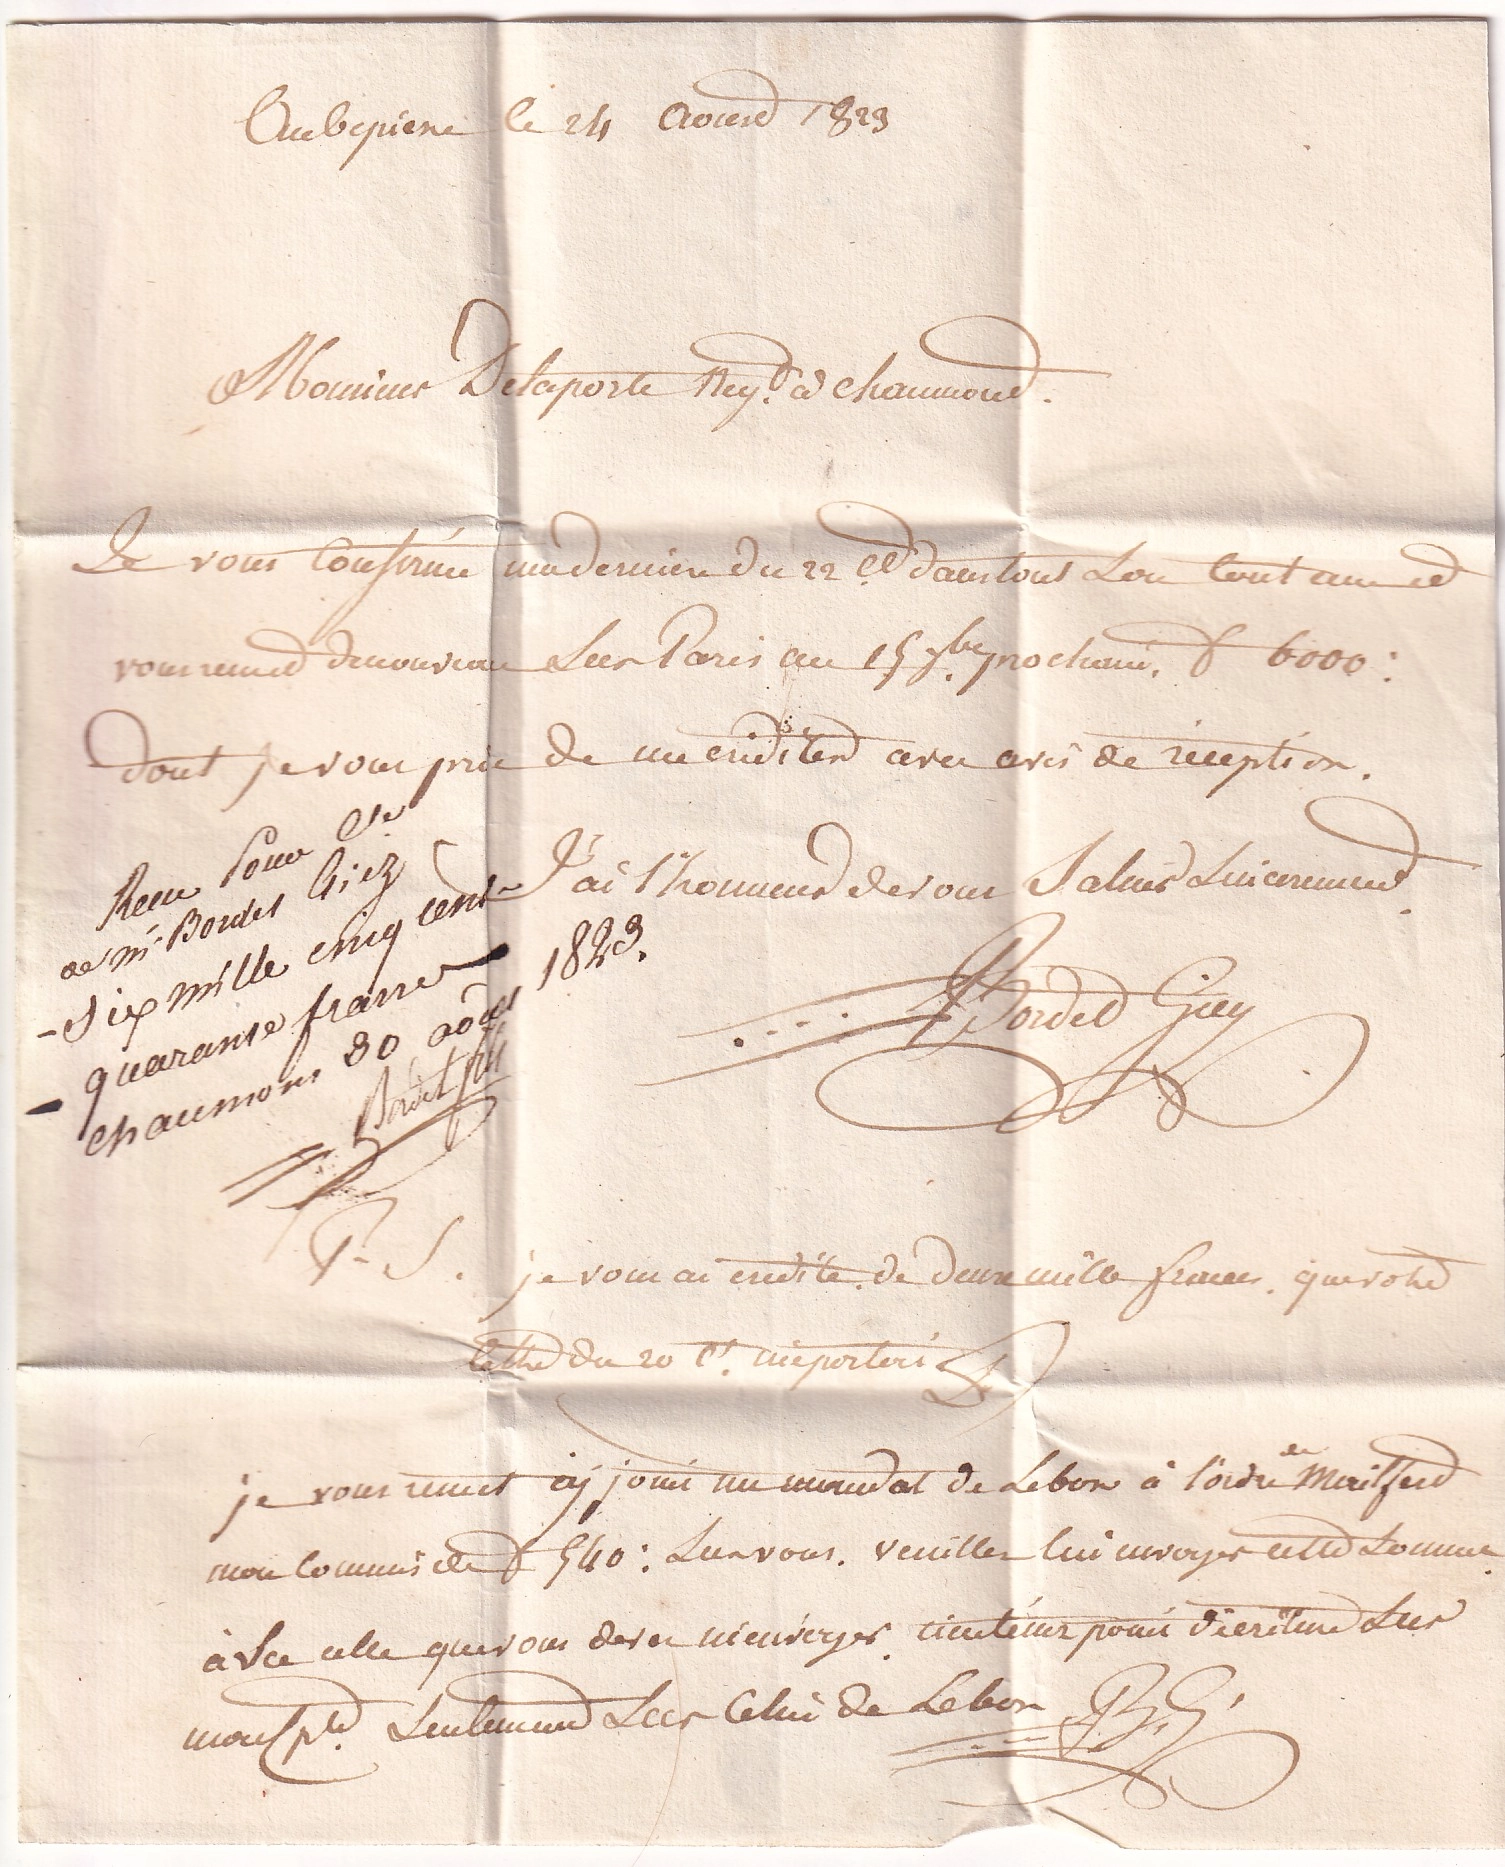 Aubepierre le 24 Aoust 1823
Monsieur Delaporte Neg.t à chaumont.
Je vous Confirme ma derniere du 22 Ct dans tout Son Contenu et
vous remet denouveau Sur Paris au 15 7bre prochain. f 6000:
dont je vous prie de me créditer avec avis de réception.
J'ai l'honneur de vous Saluer Sincerement.
Bordet Giey
Recu Pour Cte
de Mr. Bordet Giez
- Six mille cinq cent
- quarante francs
chaumont 30 août 1823.
Bordet fils
P. S. je vous ai crédité de deux mille francs. que votre
lettre du 20 Ct. m'a porteri
je vous remet cy joint un mandat de Lebon à l'ordre de
mon Commis de f 540: Sur vous. veuillez lui envoyer cette Somme
à Sce celle que vous devez m'envoyer. point d'ecriture Sur
mon Cpte. Seulement Sur Celui de Lebon B. G.